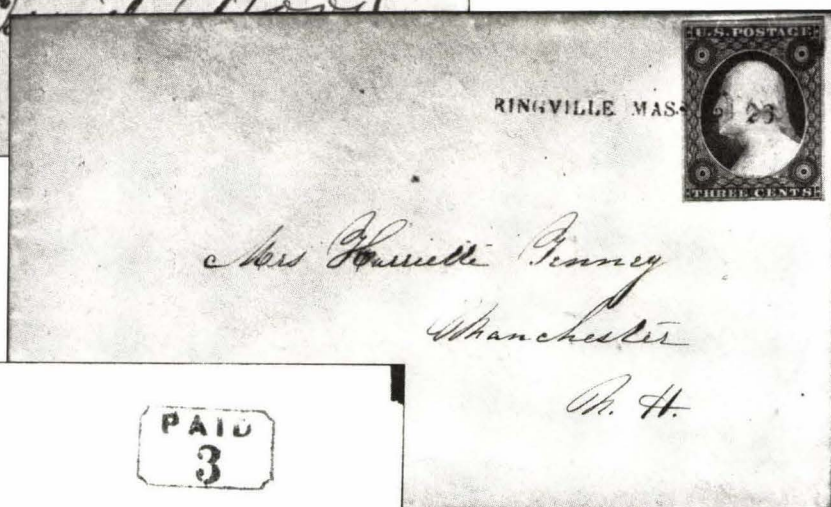 U.S. POSTAGE
RINGVILLE MASS 23
THREE CENTS
Mrs Harriette Tenney
Manchester
N. H.
PAID
3